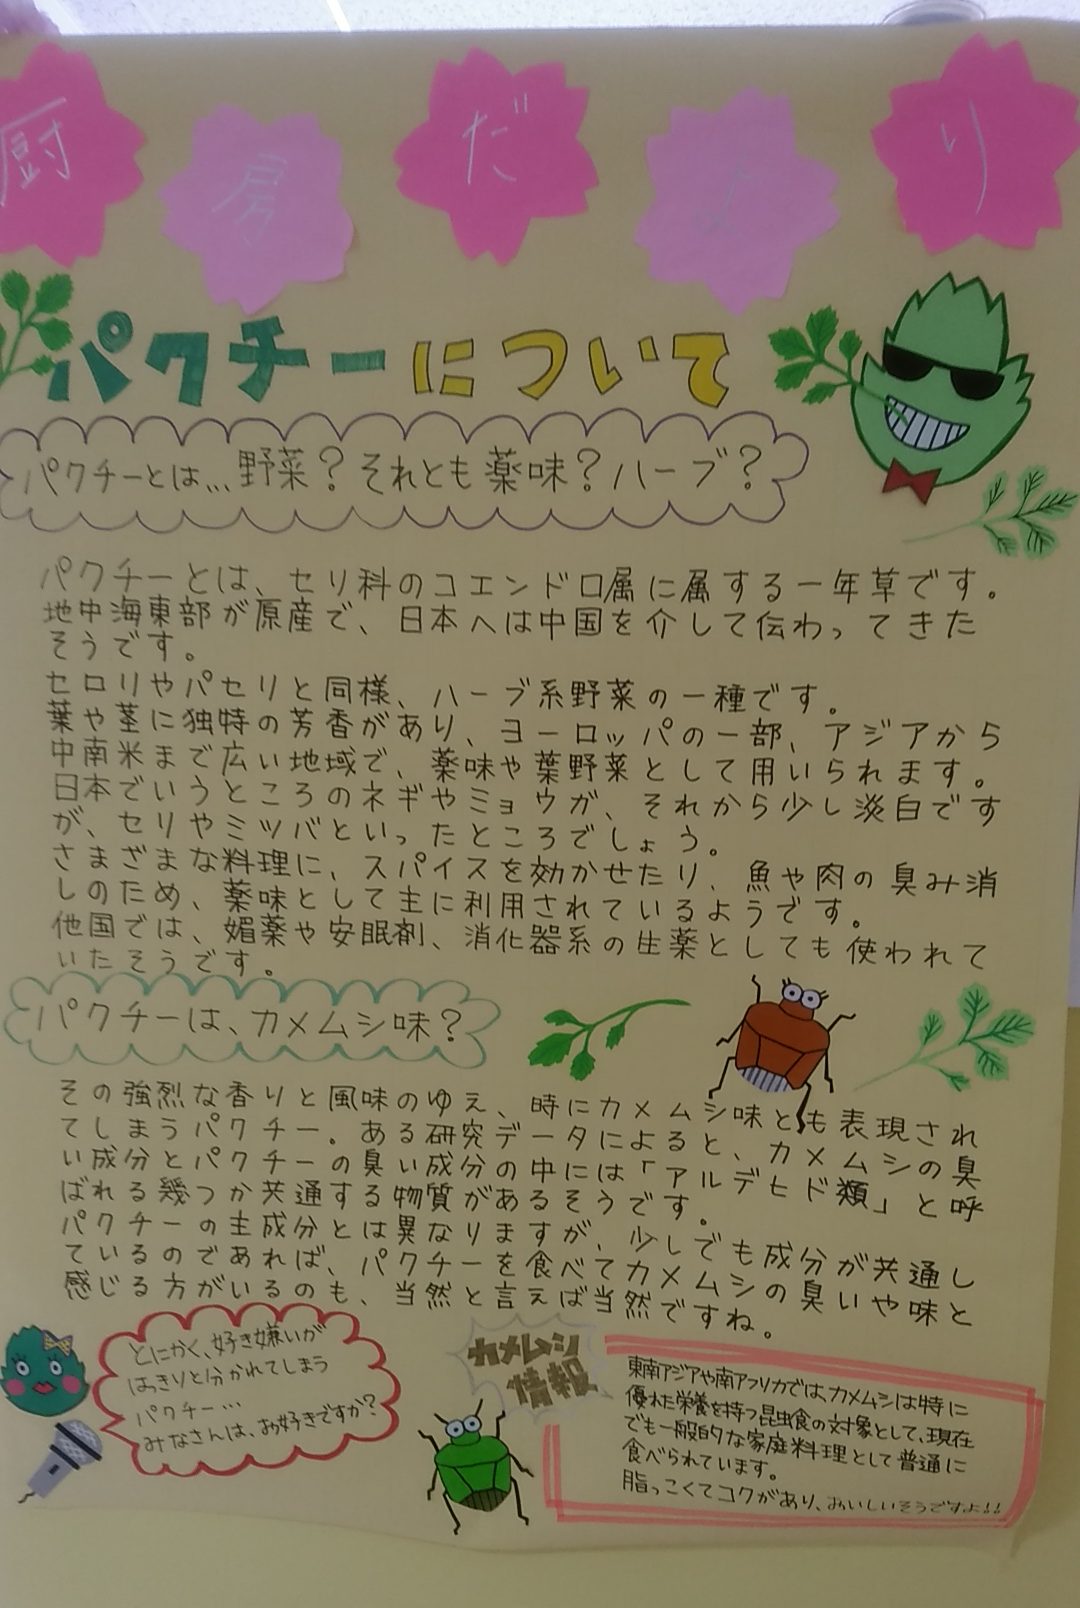 厨房だより
パクチーについて
パクチーとは…野菜？それとも薬味？ハーブ？
パクチーとは、セリ科のコエンドロ属に属する一年草です。
地中海東部が原産で、日本へは中国を介して伝わってきた
そうです。
セロリやパセリと同様、ハーブ系野菜の一種です。
葉や茎に独特の芳香があり、ヨーロッパの一部、アジアから
中南米まで広い地域で、薬味や葉野菜として用いられます。
日本でいうところのネギやミョウガ、それから少し淡白です
が、セリやミツバといったところでしょう。
さまざまな料理に、スパイスを効かせたり、魚や肉の臭み消
しのため、薬味として主に利用されているようです。
他国では、媚薬や安眠剤、消化器系の生薬としても使われて
いたそうです。
パクチーは、カメムシ味？
その強烈な香りと風味のゆえ、時にカメムシ味とも表現され
てしまうパクチー。ある研究データによると、カメムシの臭
い成分とパクチーの臭い成分の中には「アルデヒド類」と呼
ばれる幾つか共通する物質があるそうです。
パクチーの主成分とは異なりますが、少しでも成分が共通し
ているのであれば、パクチーを食べてカメムシの臭いや味と
感じる方がいるのも、当然と言えば当然ですね。
とにかく、好き嫌いが
はっきりと分かれてしまう
パクチー…
みなさんは、お好きですか？
カメムシ
情報
東南アジアや南アフリカでは、カメムシは特に
優れた栄養を持つ昆虫食の対象として、現在
でも一般的な家庭料理として普通に
食べられています。
脂っこくてコクがあり、おいしいそうですよ!!